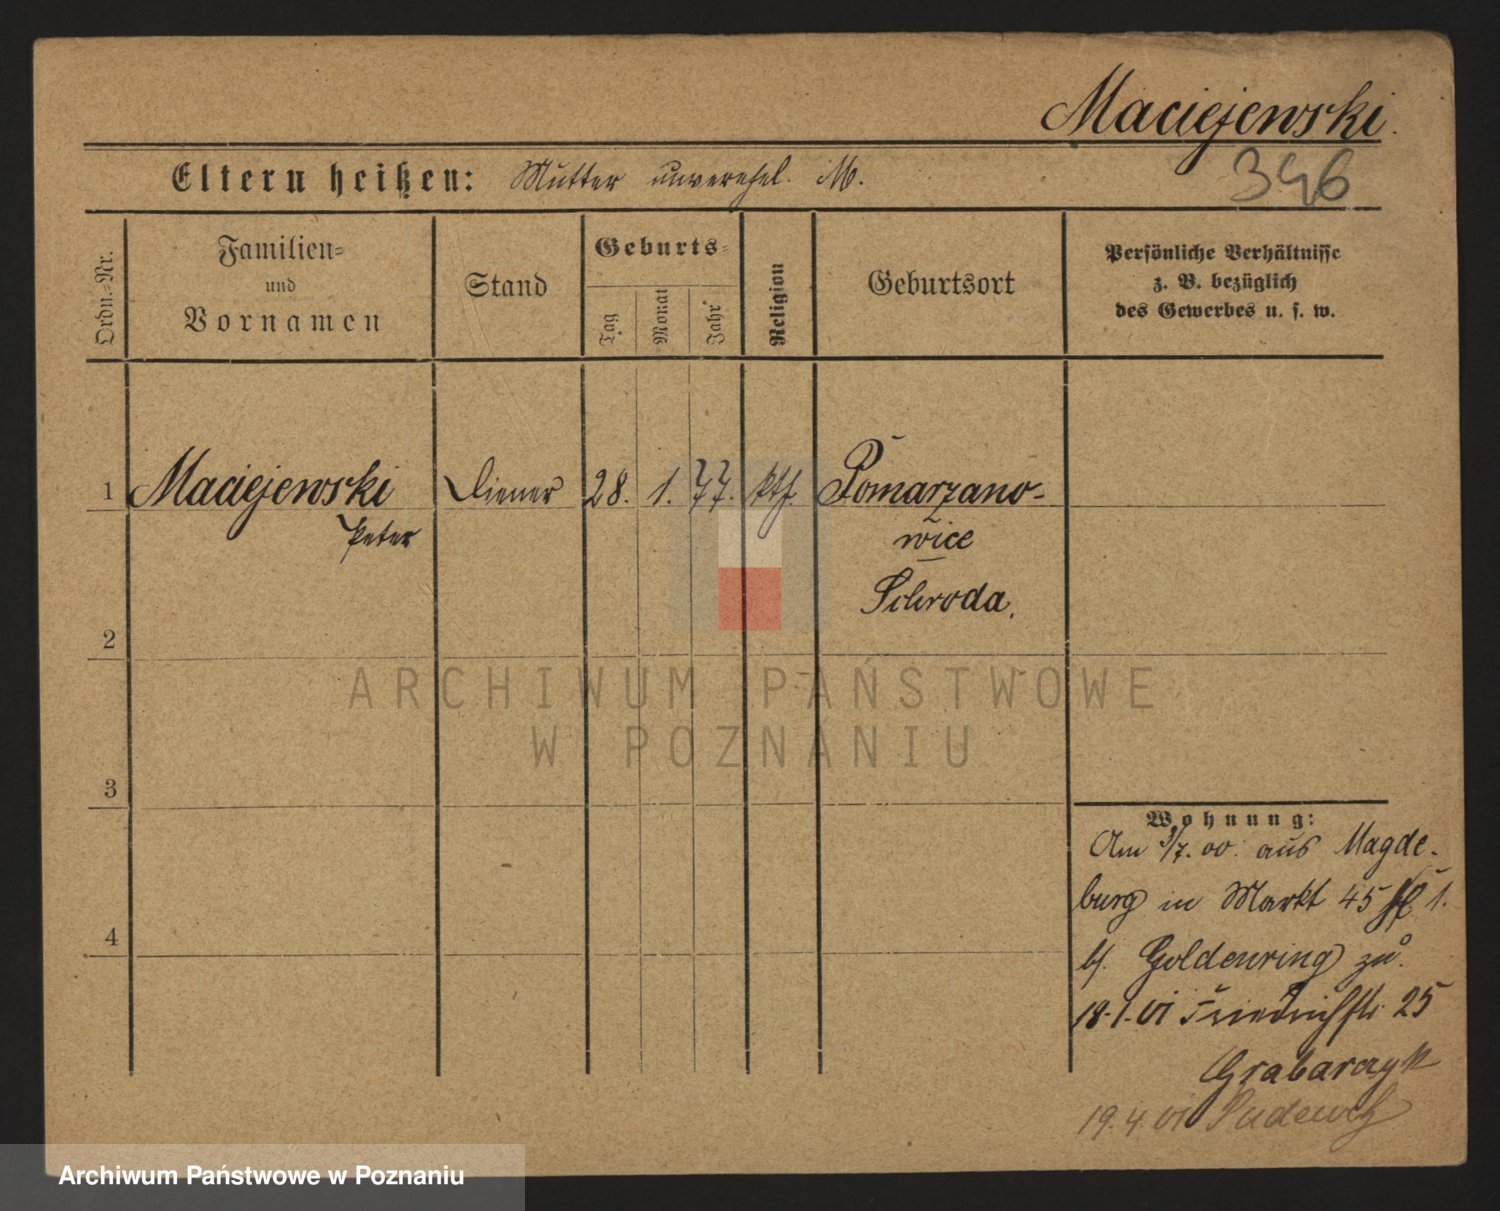 Maciejewski.
346
Eltern heißen: Mutter unverehel. M.
Ordn.-Nr.
Familien-
und
Vornamen
Stand
Geburts-
Tag
Monat
Jahr
Religion
Geburtsort
Persönliche Verhältnisse
z. B. bezüglich
des Gewerbes u. s. w.
1 Maciejewski Diener 28. 1. 77. kth. Pomarzano-
Peter wice
Schroda.
2
3
4
ARCHIWUM PAŃSTWOWE
W POZNANIU
Wohnung:
Am 3/7. 00. aus Magde-
burg in Markt 45 1.
b/. Goldenring zu.
18.1.01 Friedrichstr. 25
Grabarczyk
19.4.01 Pudewitz
Archiwum Państwowe w Poznaniu